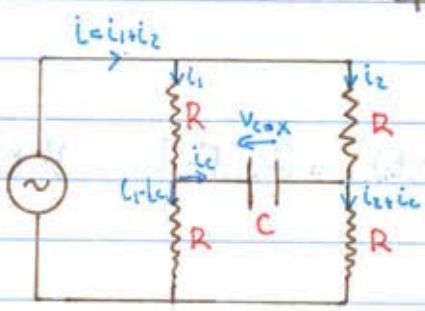 i = i₁+i₂
i₁
i₂
R
R
V_C = X
i_C
i₁-i_C
i₂+i_C
C
R
R